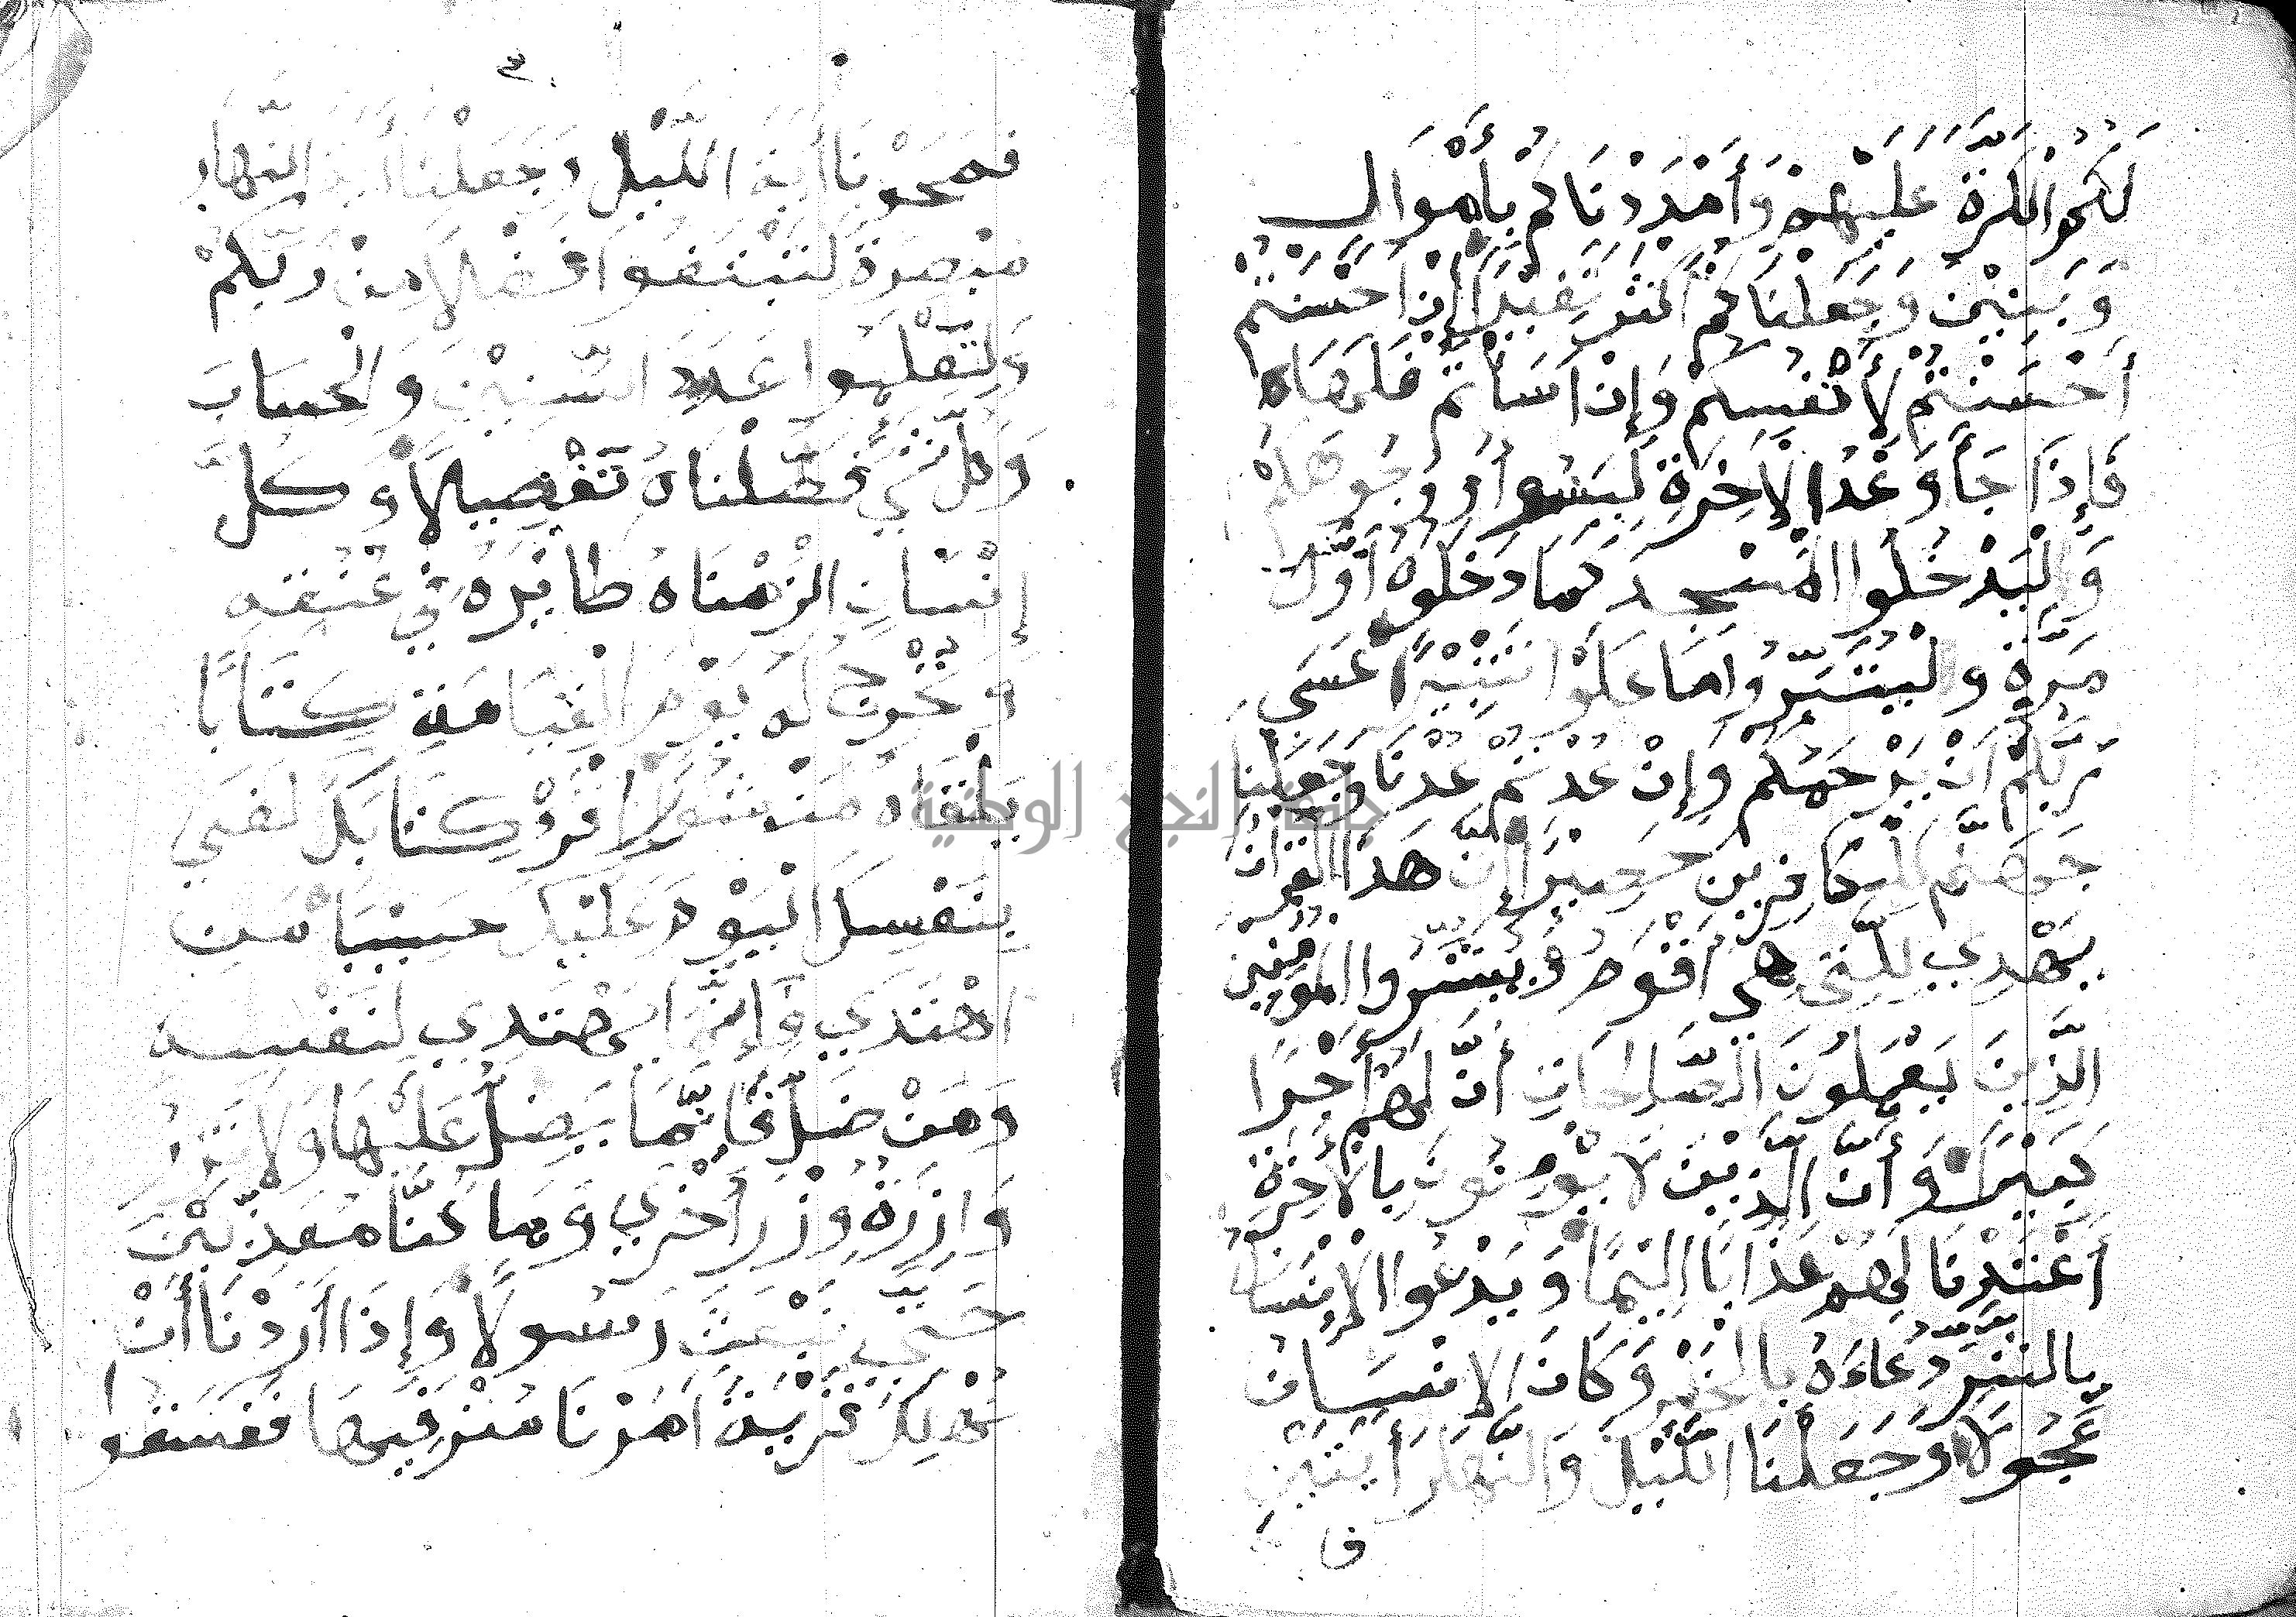 لَكُمُ الْكَرَّةَ عَلَيْهِمْ وَأَمْدَدْنَاكُمْ بِأَمْوَالٍ
وَبَنِيْنَ وَجَعَلْنَاكُمْ أَكْثَرَ نَفِيْرًا إِنْ اَحْسَنْتُمْ
أَحْسَنْتُمْ لِأَنْفُسِكُمْ وَإِنْ اَسَأْتُمْ فَلَهَا
فَإِذَا جَأَ وَعْدُ الْأَخِرَةِ لِيَسُوأُو وُجُوهَكُمْ
وَلِيَدْخُلُوا الْمَسْجِدَ كَمَا دَخَلُوهُ أَوَّلَ
مَرَّةٍ وَلِيُتَبِّرُوا مَا عَلَوْا تَتْبِيْرًا عَسَى
رَبُّكُمْ اَنْ يَرْحَمَكُمْ وَإِنْ عُدْتُمْ عُدْنَا وَجَعَلْنَا
جَهَنَّمَ لِلْكَافِرِينَ حَصِيْرًا إِنَّ هَذَا الْقُرْأَنَ
يَهْدِي لِلَّتِي هِيَ أَقْوَمُ وَيُبَشِّرُوا الْمُؤْمِنِينَ
الَّذِينَ يَعْمَلُونَ الصَّالِحَاتِ أَنَّ لَهُمْ أَجْرًا
كَبِيْرًا وَأَنَّ الَّذِيْنَ لَا يُؤْمِنُونَ بِالْأَخِرَةِ
أَعْتَدْنَا لَهُمْ عَذَابًا اَلِيْمًا وَيَدْعُوا الْإِنْسَانُ
بِالشَّرِّ دُعَاءَهُ بِالْخَيْرِ وَكَانَ الْإِنْسَانُ
عَجُولًا وَجَعَلْنَا اللَّيْلَ وَالنَّهَارَ أَيَتَيْنِ
ف
٣
فَمَحَوْنَا أَيَةَ اللَّيْلِ وَجَعَلْنَا أَيَةَ النَّهَارِ
مُبْصِرَةً لِتَبْتَغُوا فَضْلًا مِنْ رَبِّكُمْ
وَلِتَعْلَمُوا عَدَدَ السِّنِيْنَ وَالْحِسَابَ
وَكُلَّ شَيْءٍ فَصَّلْنَاهُ تَفْصِيلًا وَكُلَّ
إِنْسَانٍ الْزَمْنَاهُ طَائِرَهُ فِي عُنُقِهِ
وَنُخْرِجُ لَهُ يَوْمَ الْقِيَامَةِ كِتَابًا
يَلْقَاهُ مَنْشُورًا اقْرَأْ كِتَابَكَ كَفَى
بِنَفْسِكَ الْيَوْمَ عَلَيْكَ حَسِيْبًا مَنِ
اهْتَدَي فَإِنَّمَا يَهْتَدِي لِنَفْسِهِ
وَمَنْ ضَلَّ فَإِنَّمَا يَضِلُّ عَلَيْهَا وَلَا تَزِرُ
وَازِرَةٌ وِزْرَ أُخْرَي وَمَا كُنَّا مُعَذِّبِيْنَ
حَتَّي نَبْعَثَ رَسُولًا وَإِذَا أَرَدْنَا أَنْ
نُهْلِكَ قَرْيَةً اَمَرْنَا مُتْرَفِيهَا فَفَسَقُوا
جامعة النجاح الوطنية